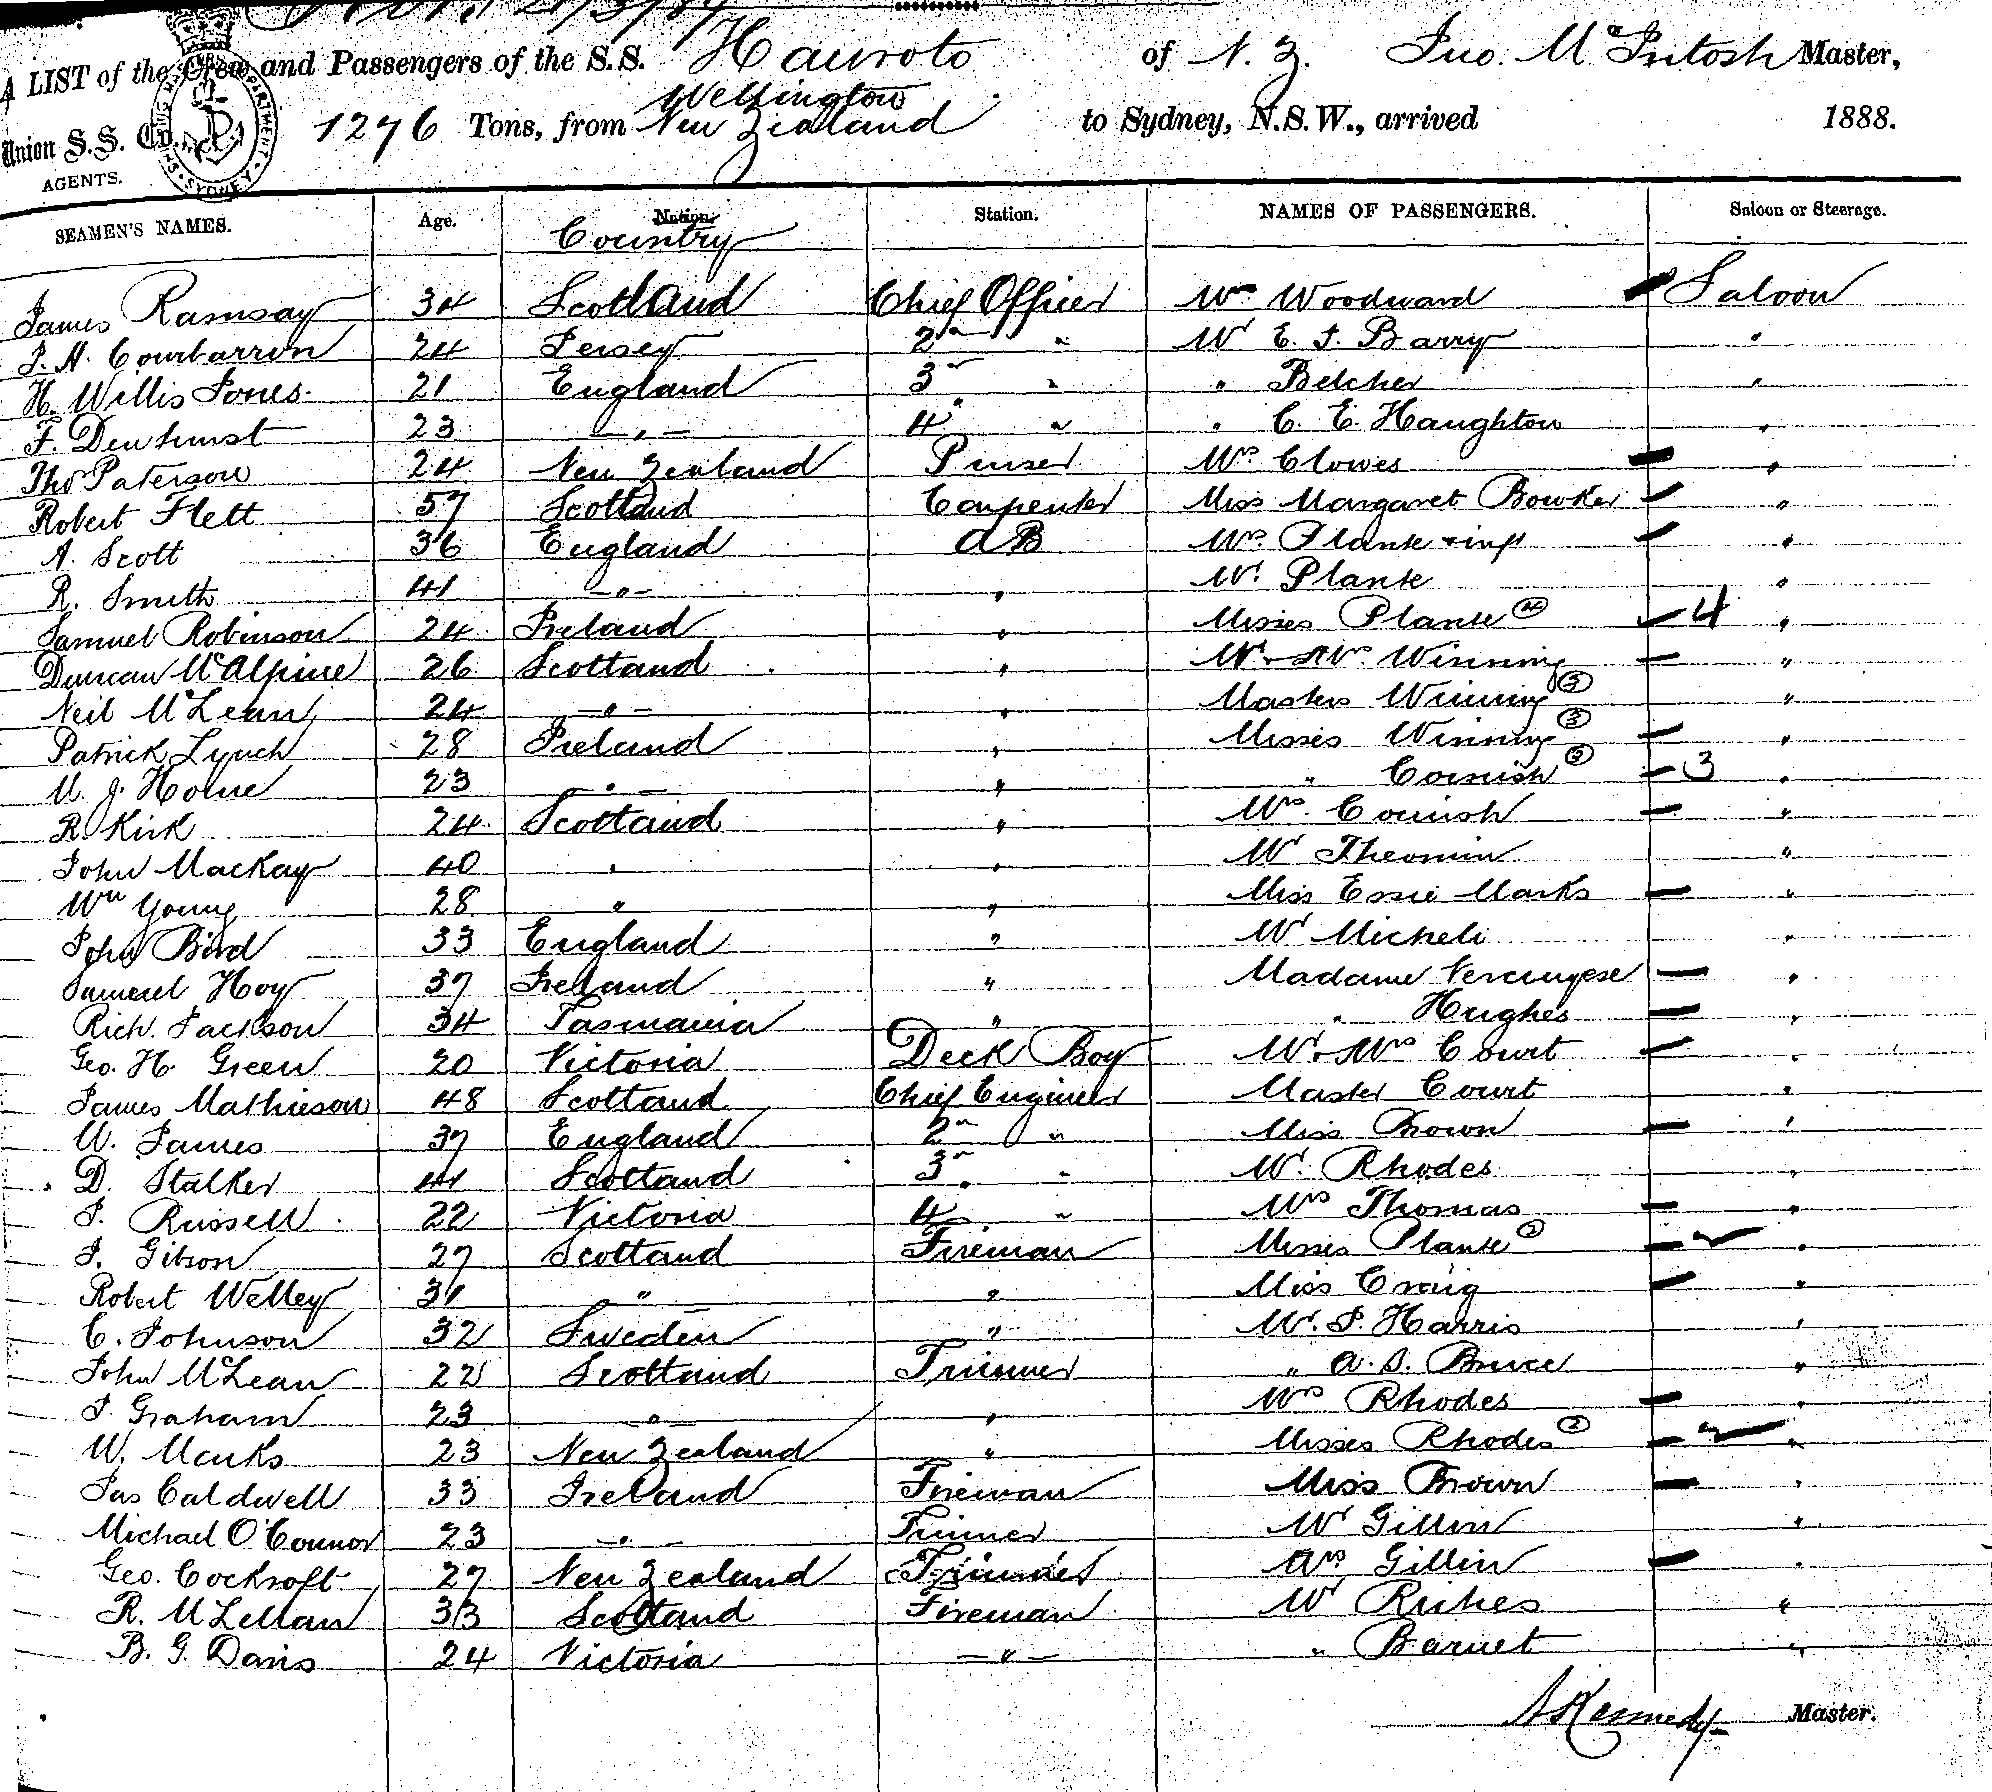 A LIST of the Crew and Passengers of the S.S. Hauroto of N. Z. Jno. McIntosh Master,
Union S.S. Co., AGENTS. 1276 Tons, from Wellington New Zealand to Sydney, N.S.W., arrived 1888.
SEAMEN'S NAMES. Age. Nation. Country Station. NAMES OF PASSENGERS. Saloon or Steerage.
James Ramsay 34 Scotland Chief Officer Mrs Woodward Saloon
J. H. Courbarron 24 Jersey 2nd " Mr E. J. Barry "
H. Willis Jones. 21 England 3rd " " Belcher "
F. Dewhurst 23 " 4 " " C. E. Haughton "
Thos Paterson 24 New Zealand Purser Mrs Clowes "
Robert Flett 57 Scotland Carpenter Miss Margaret Bowker "
A. Scott 36 England AB Mrs Plante & inft "
R. Smith 41 " " Mr. Plante "
Samuel Robinson 24 Ireland " Misses Plante (4) 4 "
Duncan McAlpine 26 Scotland " Mr & Mrs Winning "
Neil McLean 24 " " Masters Winning (3) "
Patrick Lynch 28 Ireland " Misses Winning (3) "
M. J. Holme 23 " " " Cornish (3) 3 "
R. Kirk 24 Scotland " Mrs. Cornish "
John Mackay 40 " " Mr Theomin "
Wm Young 28 " " Miss Essie Marks "
John Bird 33 England " Mr Micheli "
Samuel Hoy 37 Ireland " Madame "
Rich. Jackson 34 Tasmania " " Hughes "
Geo. H. Green 20 Victoria Deck Boy Mr & Mrs Court "
James Mathieson 48 Scotland Chief Engineer Master Court "
W. James 37 England 2nd " Miss Brown "
D. Stalker 41 Scotland 3rd " Mr. Rhodes "
J. Russell 22 Victoria 4 " Mrs Thomas "
J. Gibson 27 Scotland Fireman Misses Plante (2) "
Robert Welley 31 " " Miss Craig "
C. Johnson 32 Sweden " Mr. P. Harris "
John McLean 22 Scotland Trimmer " A. S. Bruce "
J. Graham 23 " " Mrs Rhodes "
W. Marks 23 New Zealand " Misses Rhodes (2) "
Jas Caldwell 33 Ireland Fireman Miss Brown "
Michael O'Connor 23 " Trimmer Mr Gillin "
Geo. Cockroft 27 New Zealand Trimmer Mrs Gillin "
R. McLellan 33 Scotland Fireman Mr Riches "
B. G. Davis 24 Victoria " " Barnet "
A Kennedy Master.